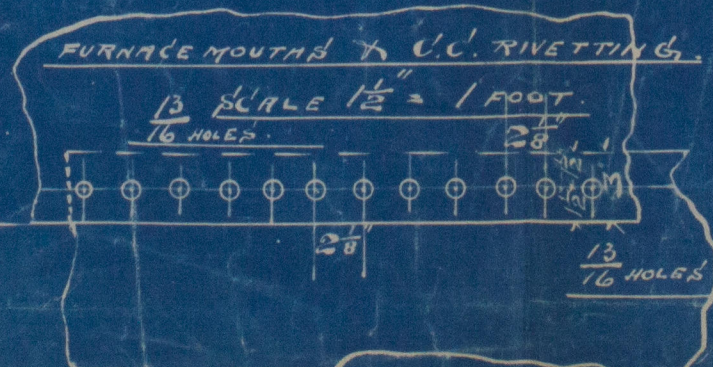 FURNACE MOUTHS & C.C. RIVETTING.
SCALE 1 1/2" = 1 FOOT.
13/16 HOLES.
2 1/8"
1 1/2" 1 1/2"
3"
2 1/8"
13/16 HOLES